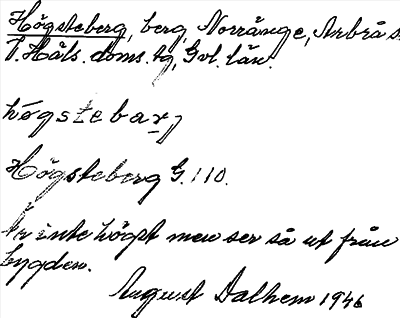 Högsteberg, berg, Norränge, Arbrå s.
V. Häls. doms. tg, Gvl. län.
högstebarj
Högsteberg G. 110.
Är inte högt men ser så ut från
bygden.
August Dalhem 1946